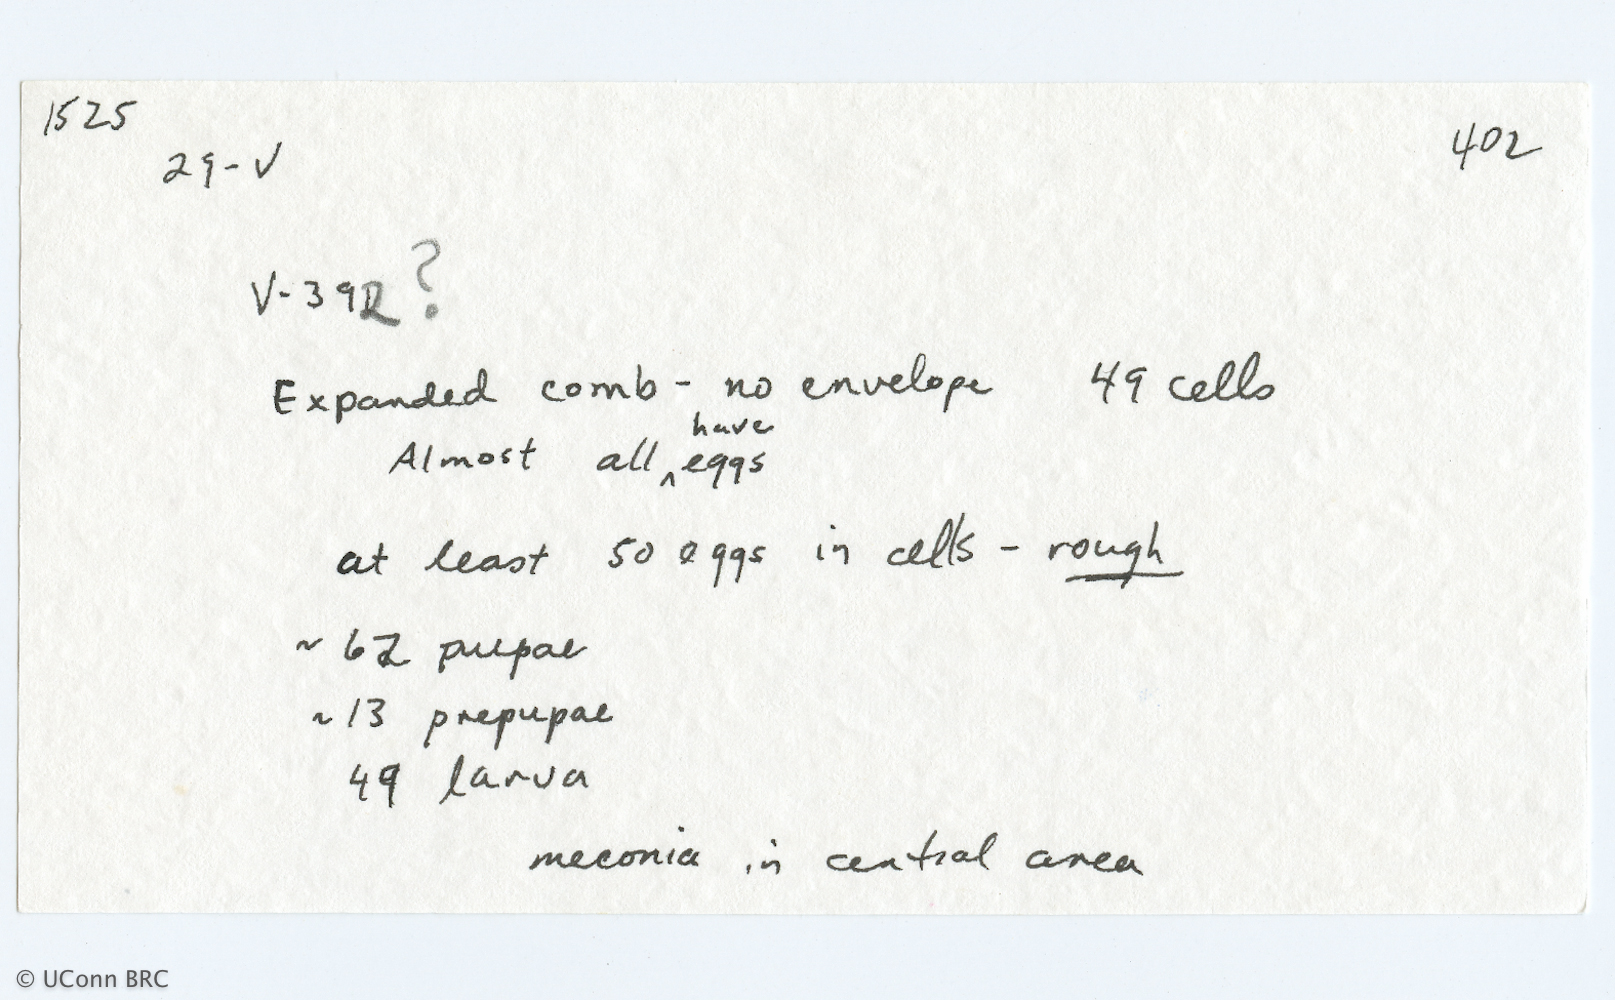 1525
402
29-V
V-39R?
Expanded comb - no envelope 49 cells
Almost all ^have eggs
at least 50 eggs in cells - rough
~ 62 pupae
~ 13 prepupae
49 larva
meconia in central area
© UConn BRC